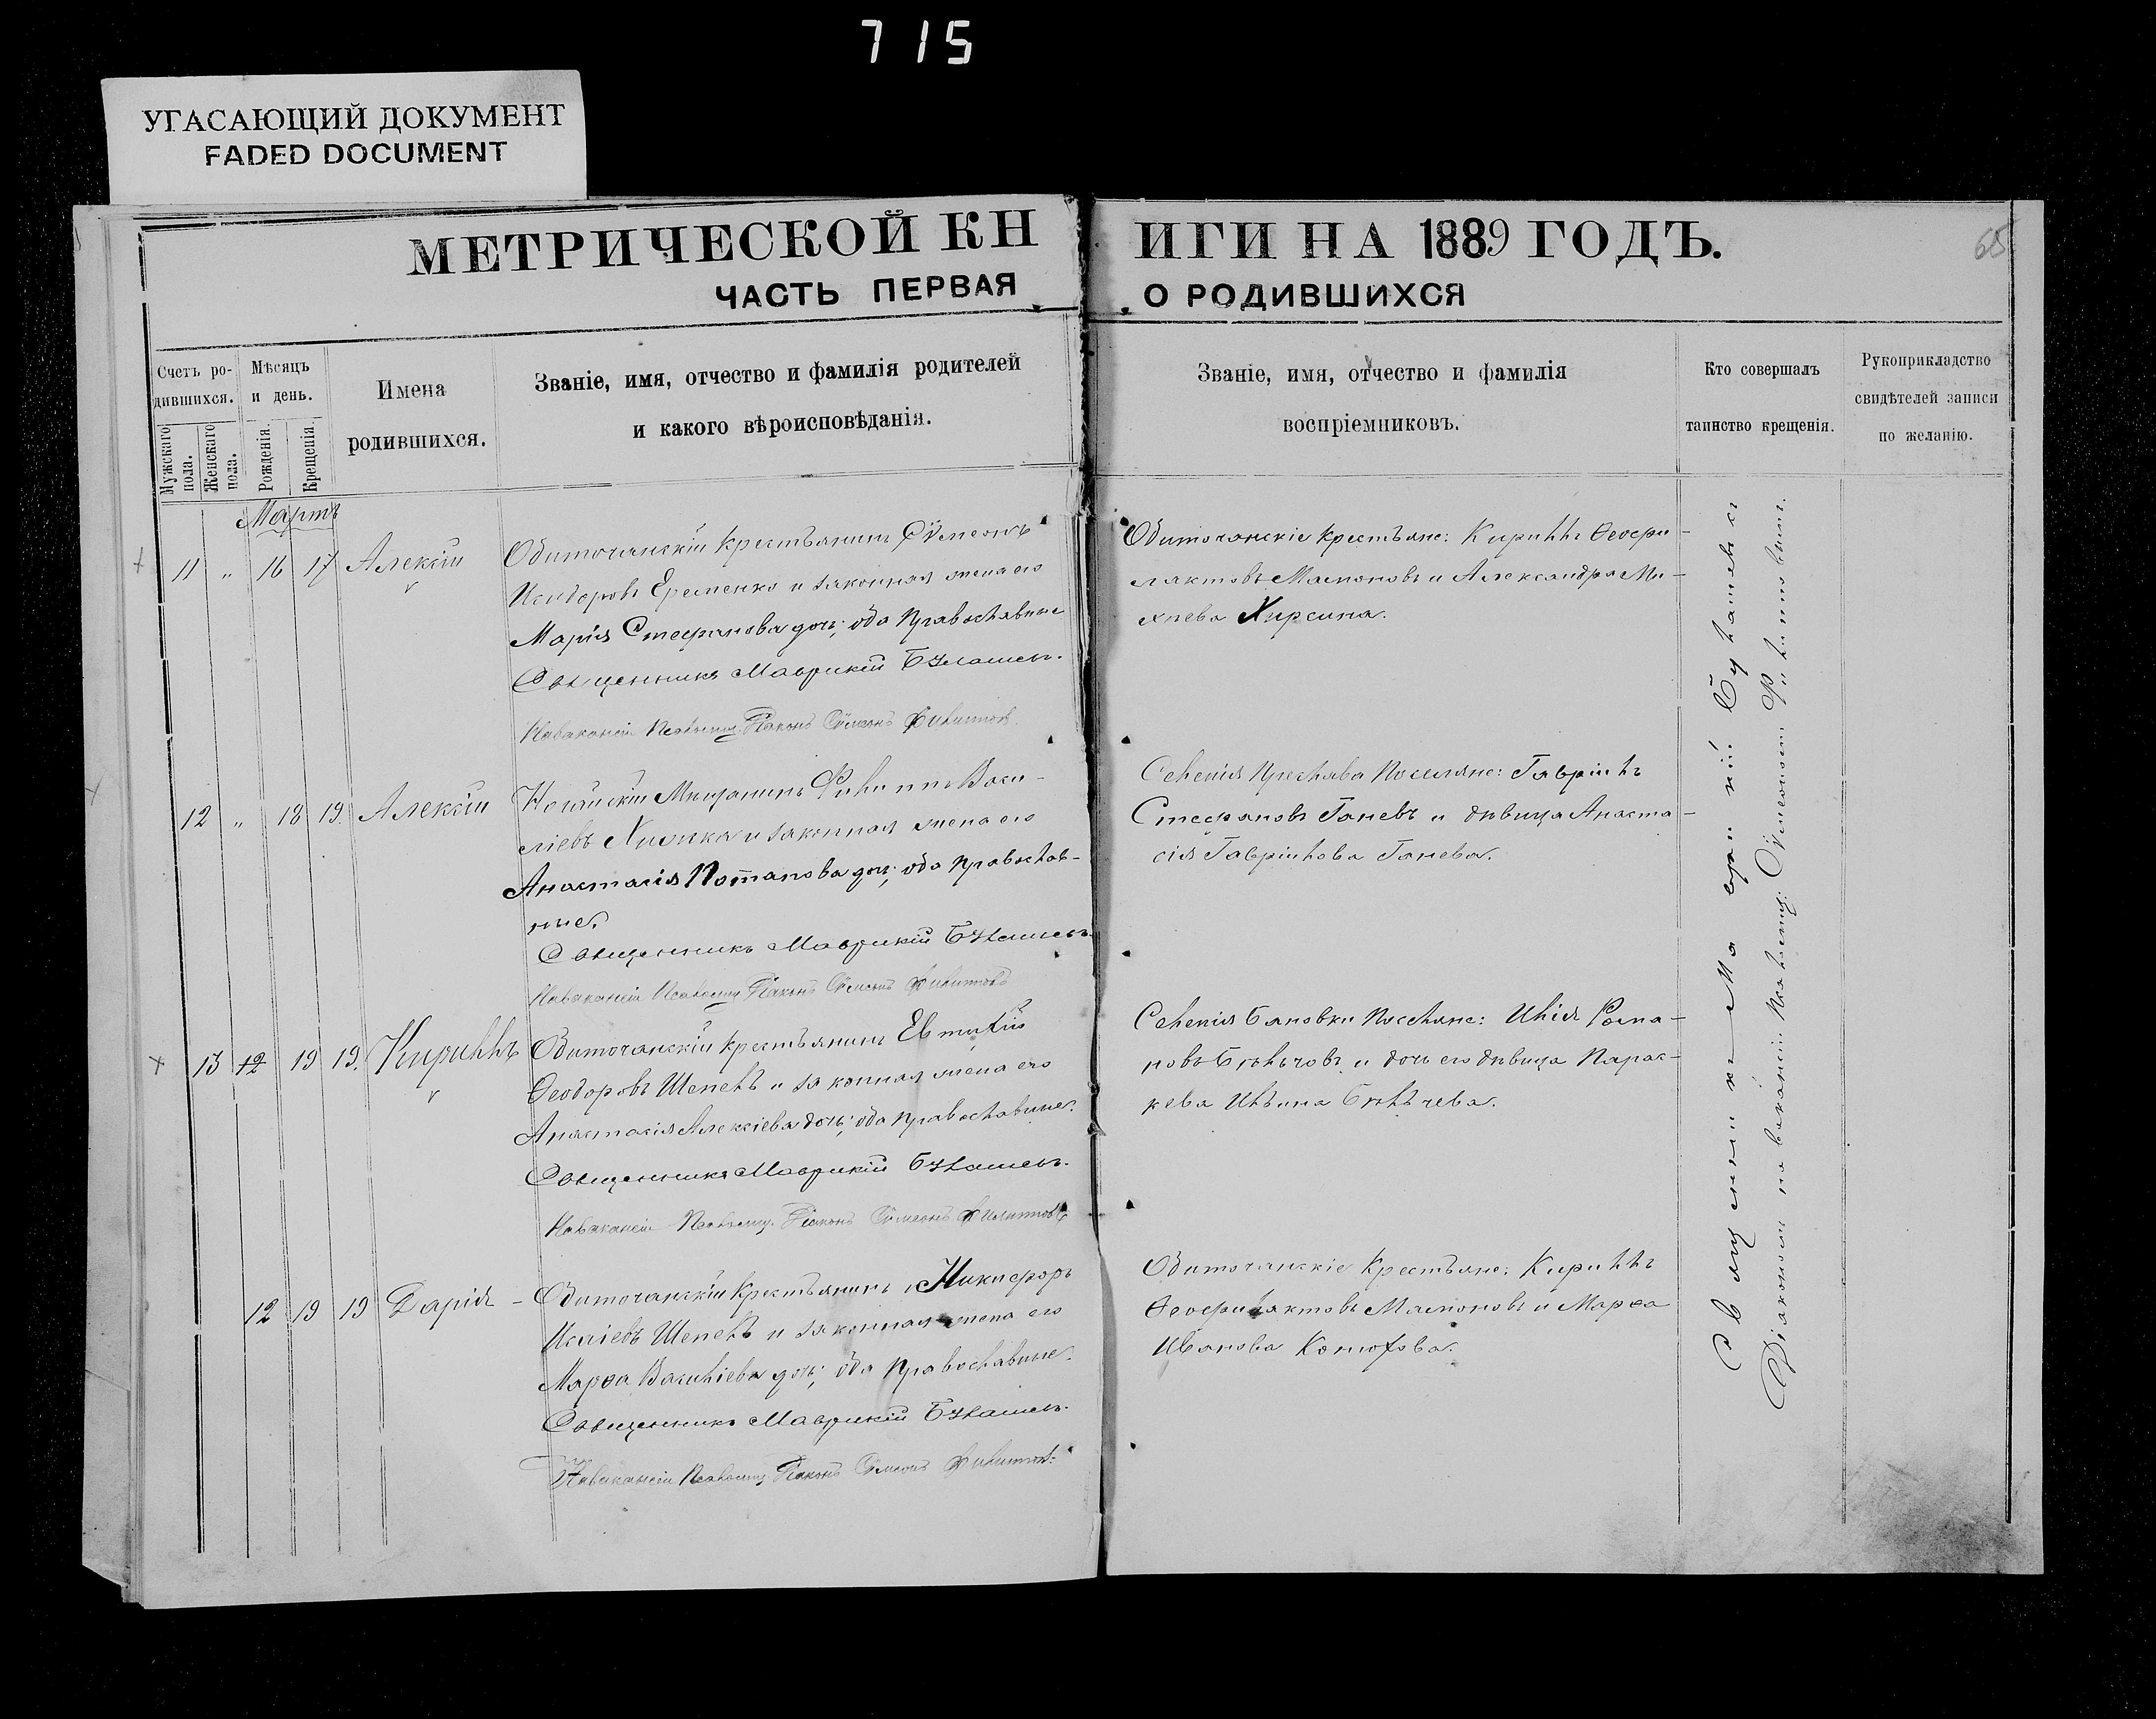 715
УГАСАЮЩИЙ ДОКУМЕНТ
FADED DOCUMENT
МЕТРИЧЕСКОЙ КНИГИ НА 1889 ГОДЪ.
65
ЧАСТЬ ПЕРВАЯ О РОДИВШИХСЯ
Счетъ ро-
дившихся.
Мужскаго пола.
Женскаго пола.
Мѣсяцъ
и день.
Рожденія.
Крещенія.
Имена
родившихся.
Званіе, имя, отчество и фамилія родителей
и какого вѣроисповѣданія.
Званіе, имя, отчество и фамилія
воспріемниковъ.
Кто совершалъ
таинство крещенія.
Рукоприкладство
свидѣтелей записи
по желанію.
Мартъ
11 „ 16 17 Алексій
Обиточанскій крестьянинъ Сѵмеонъ
Исидоровъ Еременко и законная жена его
Марія Стефанова дочь; оба православные
Священникъ Маврикій
На вакансіи Псаломщ. Діаконъ Сѵмеонъ Филипповъ
Обиточанскіе крестьяне: Кириллъ Ѳеофи-
лактовъ Мамоновъ и Александра Ми-
хнева Хирсина.
12 „ 18 19. Алексій
Ногайскій Мѣщанинъ Филиппъ Васи-
ліевъ и законная жена его
Анастасія Потапова дочь; оба православ-
ные.
Священникъ Маврикій
На вакансіи Псаломщ. Діаконъ Сѵмеонъ Филипповъ
Селенія Преслава Поселяне: Гавріилъ
Стефановъ Ганевъ и дѣвица Анаста-
сія Гавріилова Ганева.
13 12 19 19. Кириллъ
Обиточанскій крестьянинъ Евтихій
Ѳеодоровъ Шепель и законная жена его
Анастасія Алексіева дочь; оба православные.
Священникъ Маврикій
На вакансіи Псаломщ. Діаконъ Сѵмеонъ Филипповъ
Селенія Бановки Поселяне: Илія Рома-
новъ и дочь его дѣвица Парас-
кева Ильина
12 19 19 Дарія
Обиточанскій крестьянинъ Никифоръ
Исаіевъ Шепель и законная жена его
Марѳа Василіева дочь; оба православные.
Священникъ Маврикій
На вакансіи Псаломщ. Діаконъ Сѵмеонъ Филипповъ
Обиточанскіе крестьяне: Кириллъ
Ѳеофилактовъ Мамоновъ и Марѳа
Иванова Конюхова.
Священникъ Маврикій
Діакономъ на вакансіи Псаломщ. Сѵмеономъ Филипповымъ.